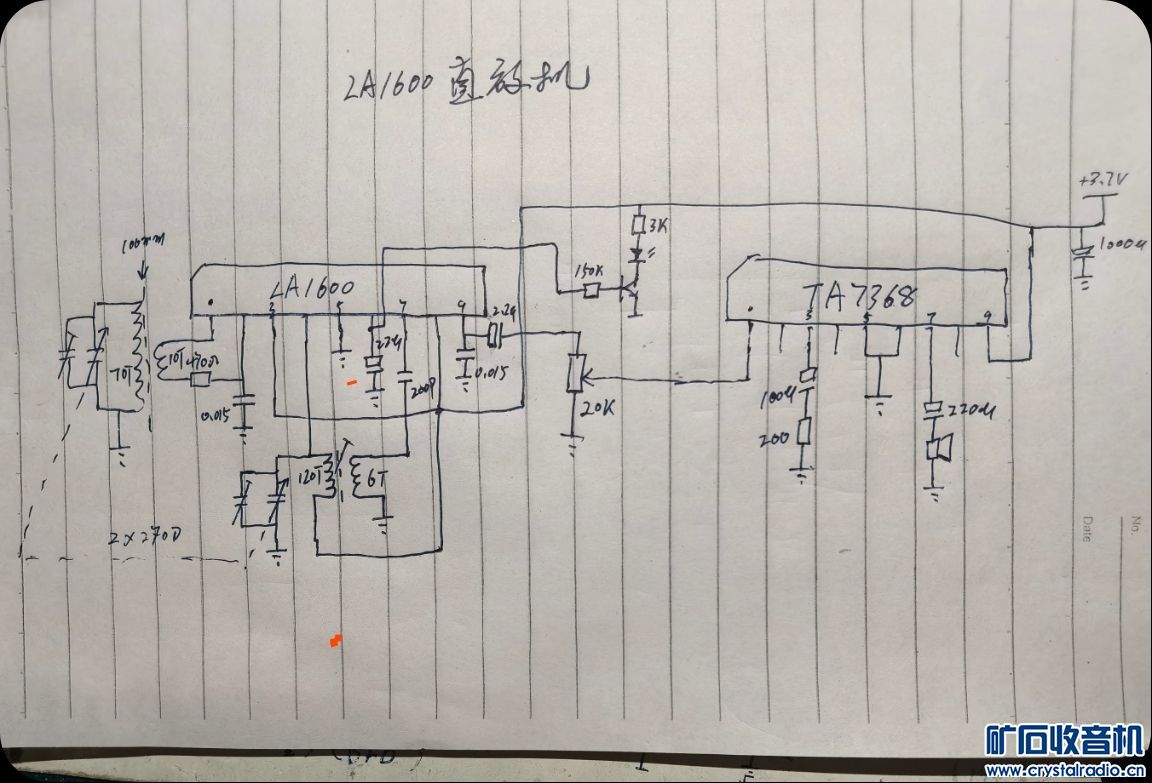 LA1600 直放机
+3.7V
1000u
3K
100mm
150K
LA1600
TA7368
3 5 7 9
2.2u
3 5 7 9
10T
470Ω
70T
22u
200P
0.015
0.015
20K
100u
200
220u
120T
6T
2×270P
No.
Date
矿石收音机
www.crystalradio.cn